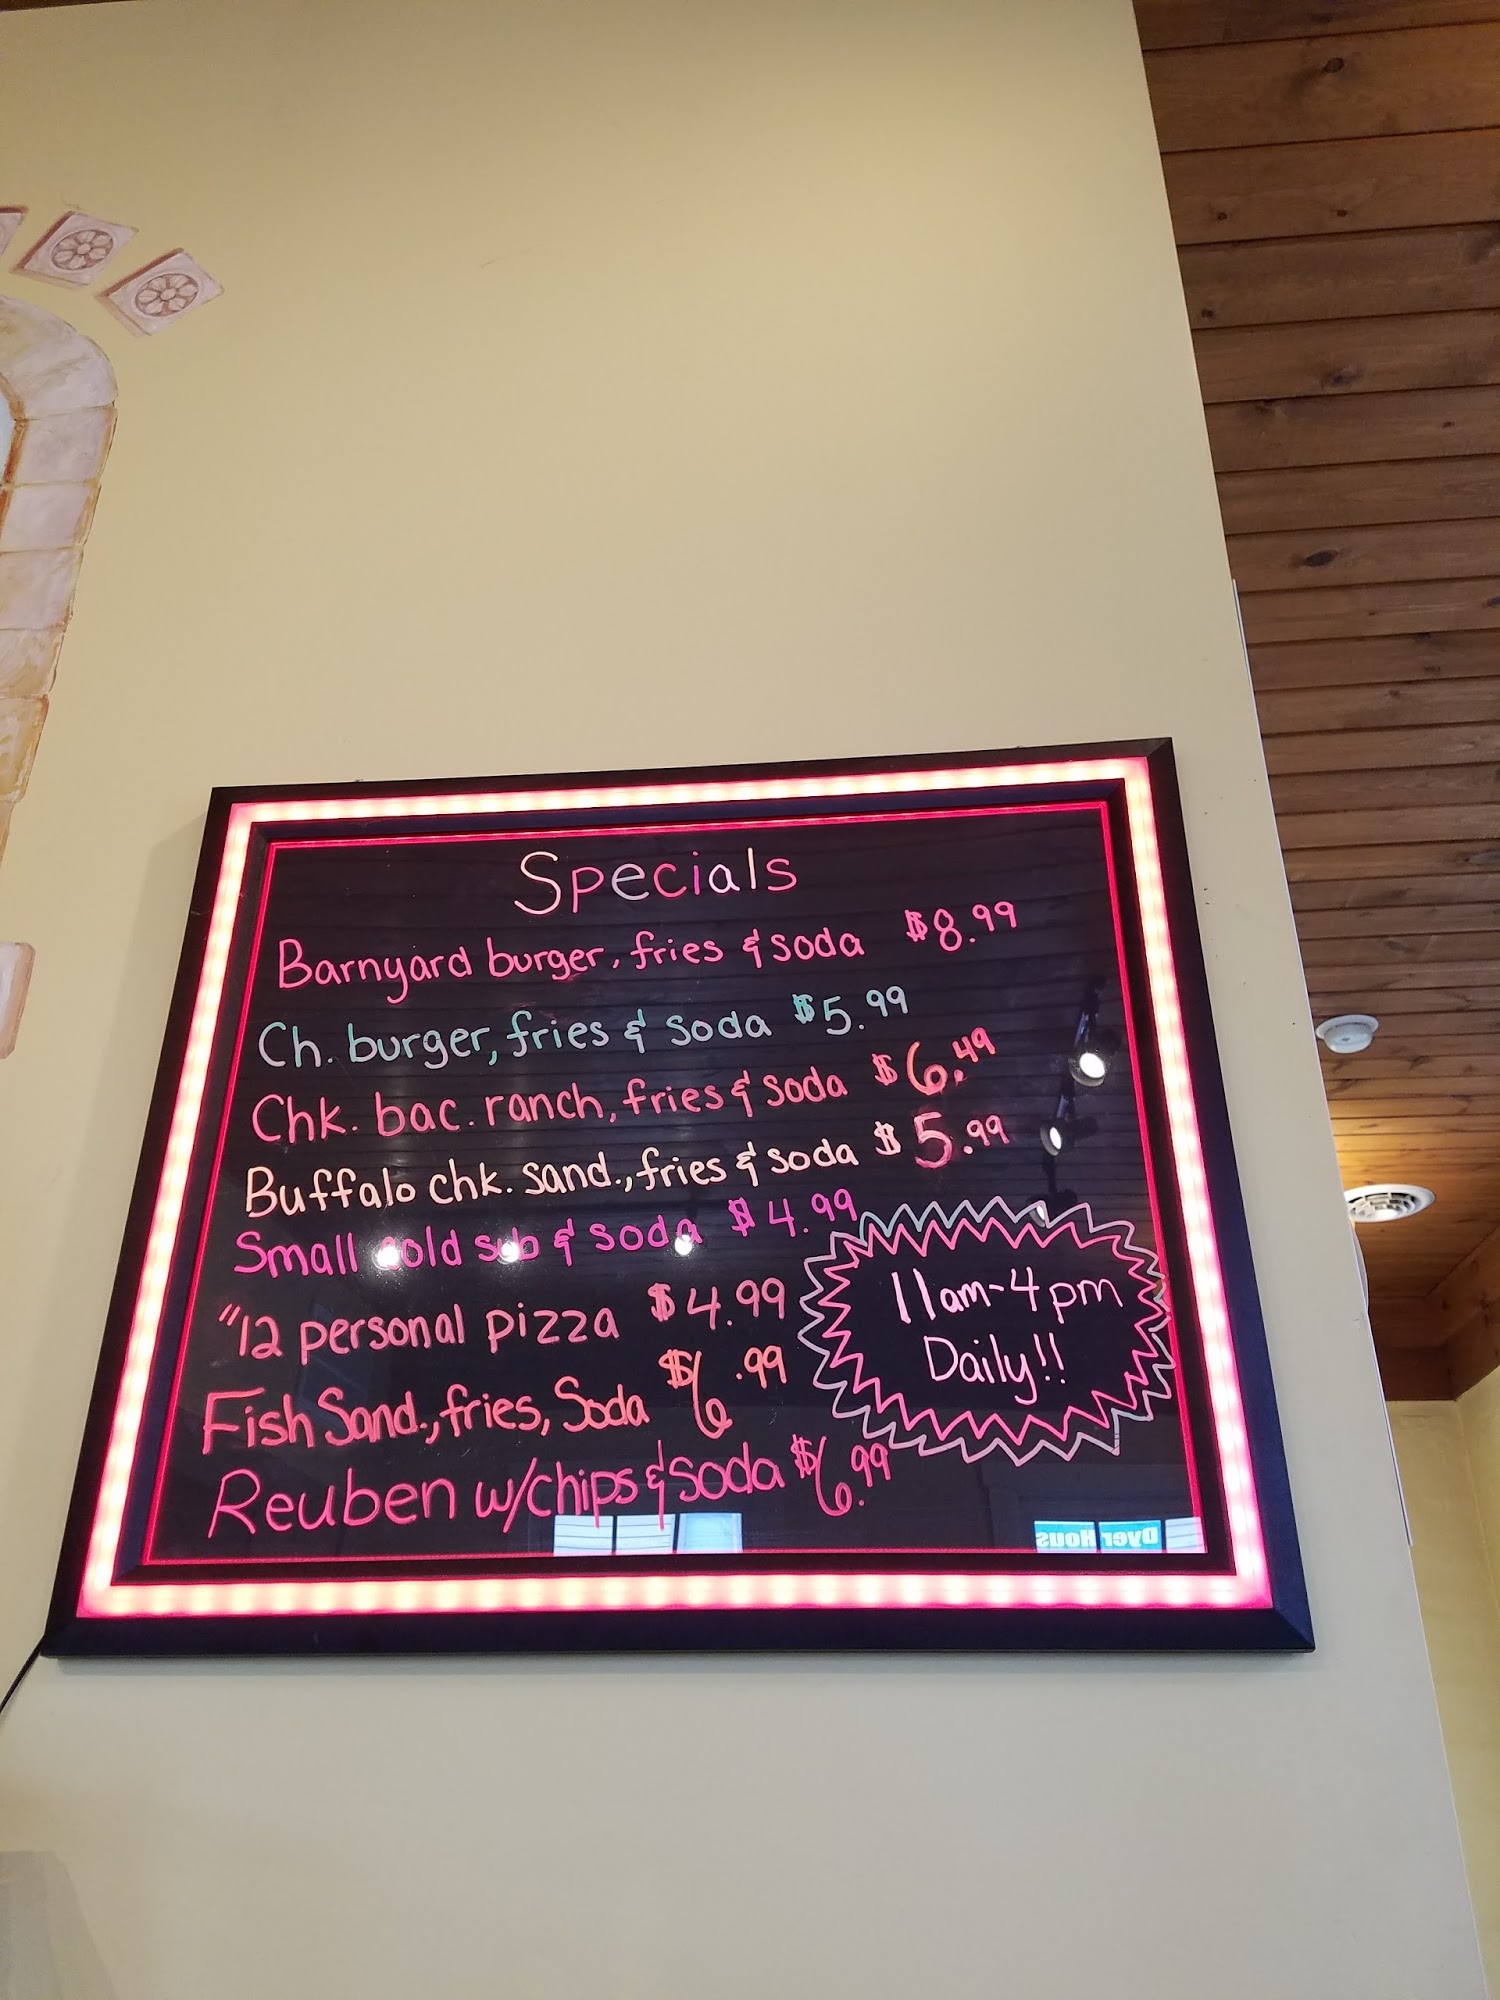 Specials
Barnyard burger, fries & soda $8.99
Ch. burger, fries & soda $5.99
Chk. bac. ranch, fries & soda $6.49
Buffalo chk. sand., fries & soda $5.99
Small cold sub & soda $4.99
"12 personal pizza $4.99
Fish Sand., fries, Soda $6.99
Reuben w/chips & soda $6.99
11am-4pm
Daily!!
Dyer Hous